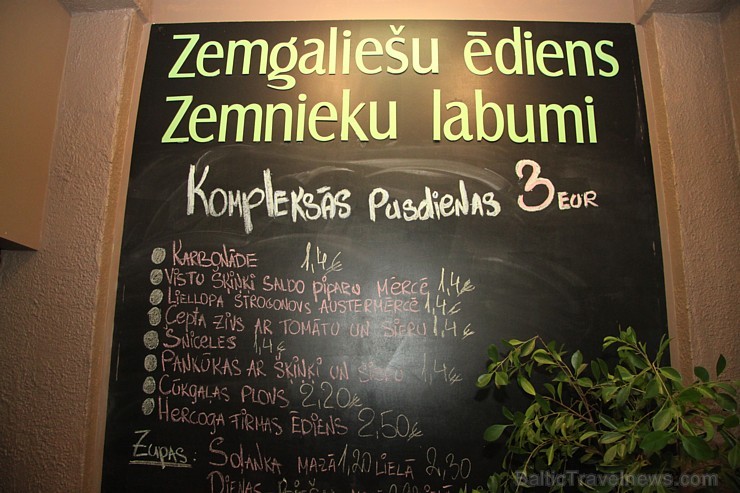 Zemgaliešu ēdiens
Zemnieku labumi
Kompleksās pusdienas 3 EUR
Karbonāde 1,4€
Vistu šķiņķi saldo piparu mērcē 1,4€
Liellopa strogonovs austermērcē 1,4€
Cepta zivs ar tomātu un sieru 1,4€
Šniceles 1,4€
Pankūkas ar šķiņķi un sieru 1,4€
Cūkgaļas plovs 2,20€
Hercoga firmas ēdiens 2,50€
Zupas: Soļanka mazā 1,20 lielā 2,30
Dienas
BalticTravelnews.com